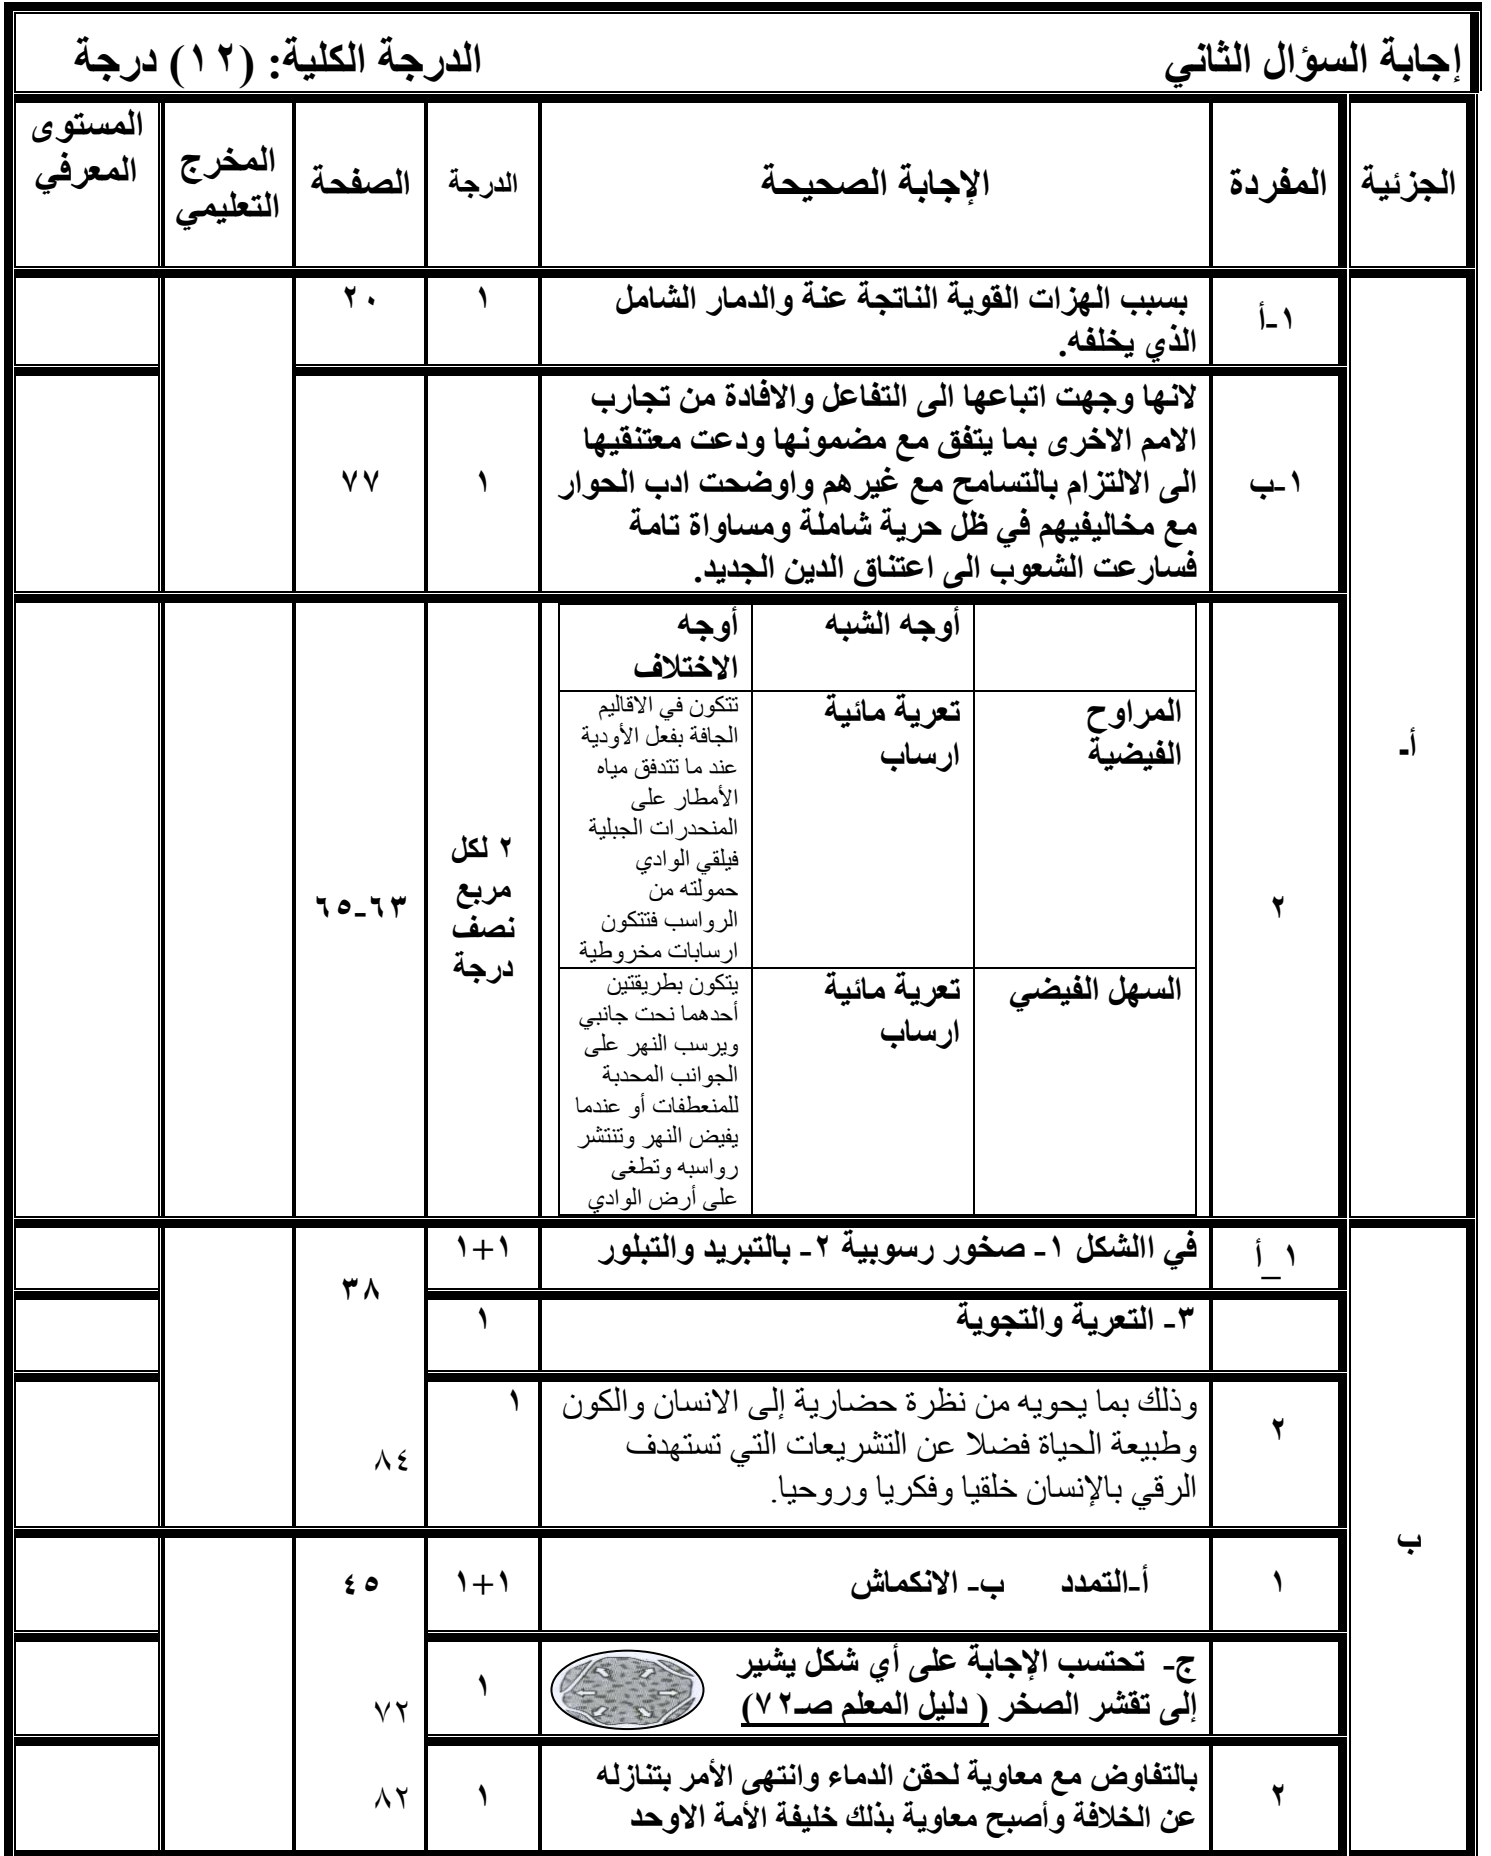 إجابة السؤال الثاني الدرجة الكلية: (١٢) درجة
الجزئية المفردة الإجابة الصحيحة الدرجة الصفحة المخرج التعليمي المستوى المعرفي
أ-
١-أ
بسبب الهزات القوية الناتجة عنة والدمار الشامل
الذي يخلفه.
١
٢٠
١-ب
لانها وجهت اتباعها الى التفاعل والافادة من تجارب
الامم الاخرى بما يتفق مع مضمونها ودعت معتنقيها
الى الالتزام بالتسامح مع غيرهم واوضحت ادب الحوار
مع مخاليفيهم في ظل حرية شاملة ومساواة تامة
فسارعت الشعوب الى اعتناق الدين الجديد.
١
٧٧
٢
أوجه الشبه
أوجه
الاختلاف
المراوح
الفيضية
تعرية مائية
ارساب
تتكون في الاقاليم
الجافة بفعل الأودية
عند ما تتدفق مياه
الأمطار على
المنحدرات الجبلية
فيلقي الوادي
حمولته من
الرواسب فتتكون
ارسابات مخروطية
السهل الفيضي
تعرية مائية
ارساب
يتكون بطريقتين
أحدهما نحت جانبي
ويرسب النهر على
الجوانب المحدبة
للمنعطفات أو عندما
يفيض النهر وتنتشر
رواسبه وتطغى
على أرض الوادي
٢ لكل
مربع
نصف
درجة
٦٣-٦٥
ب
١_أ
في االشكل ١- صخور رسوبية ٢- بالتبريد والتبلور
١+١
٣٨
٣- التعرية والتجوية
١
٢
وذلك بما يحويه من نظرة حضارية إلى الانسان والكون
وطبيعة الحياة فضلا عن التشريعات التي تستهدف
الرقي بالإنسان خلقيا وفكريا وروحيا.
١
٨٤
١
أ-التمدد ب- الانكماش
١+١
٤٥
ج- تحتسب الإجابة على أي شكل يشير
إلى تقشر الصخر ( دليل المعلم صـ٧٢)
١
٧٢
٢
بالتفاوض مع معاوية لحقن الدماء وانتهى الأمر بتنازله
عن الخلافة وأصبح معاوية بذلك خليفة الأمة الاوحد
١
٨٢